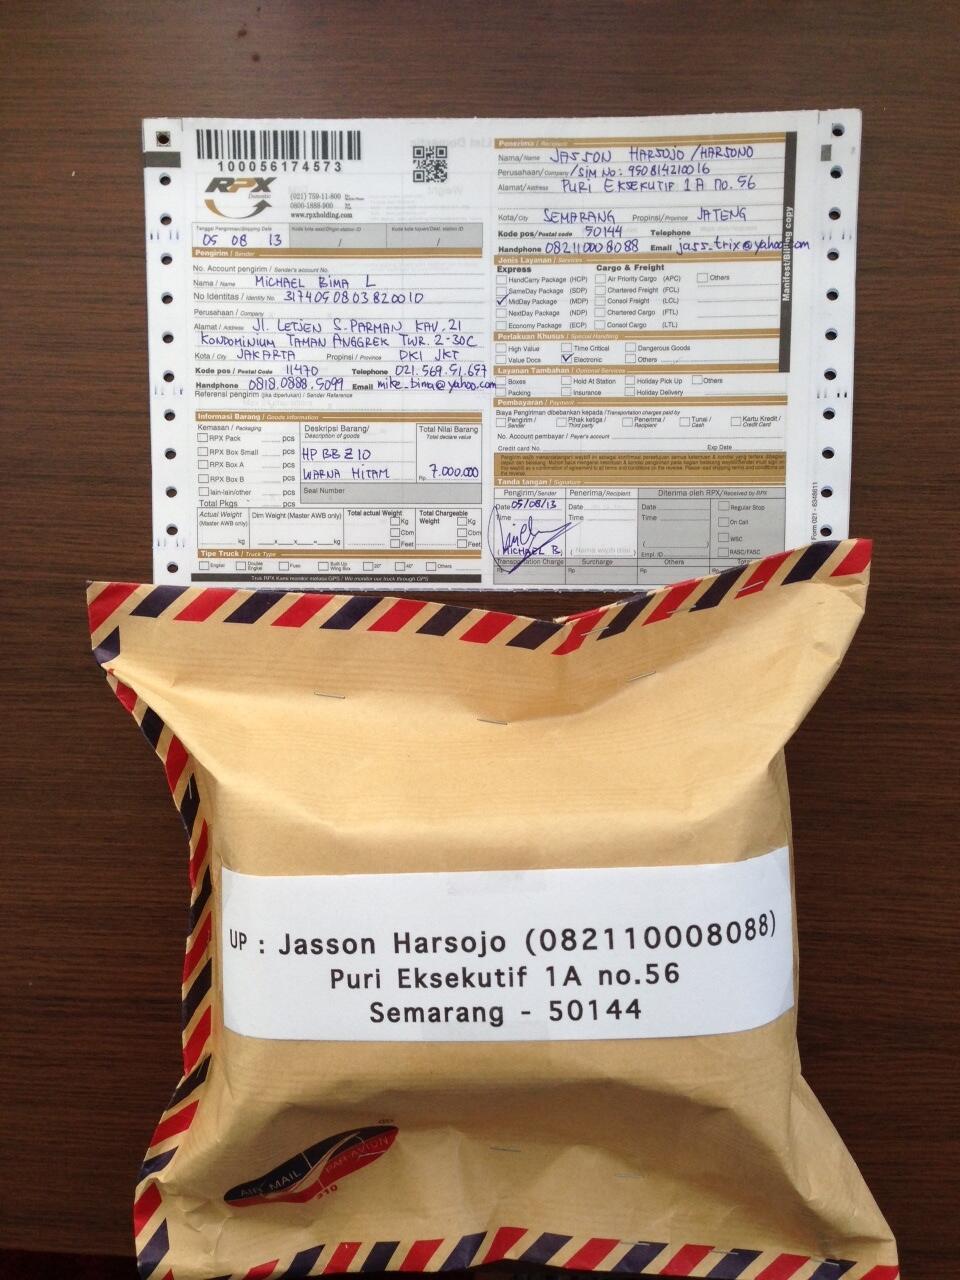 100056174573
RPX
Domestic
(021) 759-11-800
0800-1888-900
www.rpxholding.com
Tanggal Pengiriman/Shipping Date
Kode kota asal/Origin station ID
Kode kota tujuan/Dest. station ID
05 08 13 / /
Pengirim / Sender
No. Account pengirim / Sender's account No.
Nama / Name MICHAEL BIMA L
No Identitas / Identity No. 3174050803820010
Perusahaan / Company
Alamat / Address Jl. LETJEN S. PARMAN KAV. 21
KONDOMINIUM TAMAN ANGGREK TWR. 2-30C
Kota / City JAKARTA Propinsi / Province DKI JKT
Kode pos / Postal Code 11470 Telephone 021.569.51.657
Handphone 0818.0888.5099 Email mike_bima@yahoo.com
Referensi pengirim (jika diperlukan) / Sender Reference
Informasi Barang / Goods information
Kemasan / Packaging
RPX Pack pcs
RPX Box Small pcs
RPX Box A pcs
RPX Box B pcs
lain-lain/other pcs
Total Pkgs pcs
Deskripsi Barang/
Description of goods
HP BB Z10
WARNA HITAM
Seal Number
Total Nilai Barang
Total declare value
Rp. 7.000.000
Actual Weight
(Master AWB only)
kg
Dim Weight (Master AWB only)
Total actual Weight
Kg
Cbm
Feet
Total Chargeable
Weight
Kg
Cbm
Feet
Tipe Truck / Truck Type
Engkel
Double Engkel
Fuso
Built Up Wing Box
20"
40"
Others
Truk RPX Kami monitor melalui GPS / We monitor our truck through GPS
Penerima / Recipient
Nama/Name JASSON HARSOJO /HARSONO
Perusahaan/Company /SIM No: 950814210016
Alamat/Address PURI EKSEKUTIF 1A no. 56
Kota/City SEMARANG Propinsi/Province JATENG
Kode pos/Postal code 50144 Telephone
Handphone 082110008088 Email jass.trix@yahoo.com
Jenis Layanan / Services
Express Cargo & Freight
HandCarry Package (HCP) Air Priority Cargo (APC) Others
SameDay Package (SDP) Chartered Freight (FCL)
MidDay Package (MDP) Consol Freight (LCL)
NextDay Package (NDP) Chartered Cargo (FTL)
Economy Package (ECP) Consol Cargo (LTL)
Perlakuan Khusus / Special Handling
High Value Time Critical Dangerous Goods
Value Docs Electronic Others
Layanan Tambahan / Optional Services
Boxes Hold At Station Holiday Pick Up Others
Packing Insurance Holiday Delivery
Pembayaran / Payment
Biaya Pengiriman dibebankan kepada / Transportation charges paid by
Pengirim / Sender
Pihak ketiga / Third party
Penerima / Recipient
Tunai / Cash
Kartu Kredit / Credit Card
No. Account pembayar / Payer's account
Credit card No. Exp Date
Tanda tangan / Signature
Pengirim/Sender Penerima/Recipient Diterima oleh RPX/Received by RPX
Date 05/08/13 Date Date Regular Stop
Time Time Time On Call
WSC
(MICHAEL B.) Empl ID. RASC/FASC
Transportation Charge Surcharge Others
Rp Rp Rp
Manifest/Billing copy
UP : Jasson Harsojo (082110008088)
Puri Eksekutif 1A no.56
Semarang - 50144
AIR MAIL PAR AVION
310